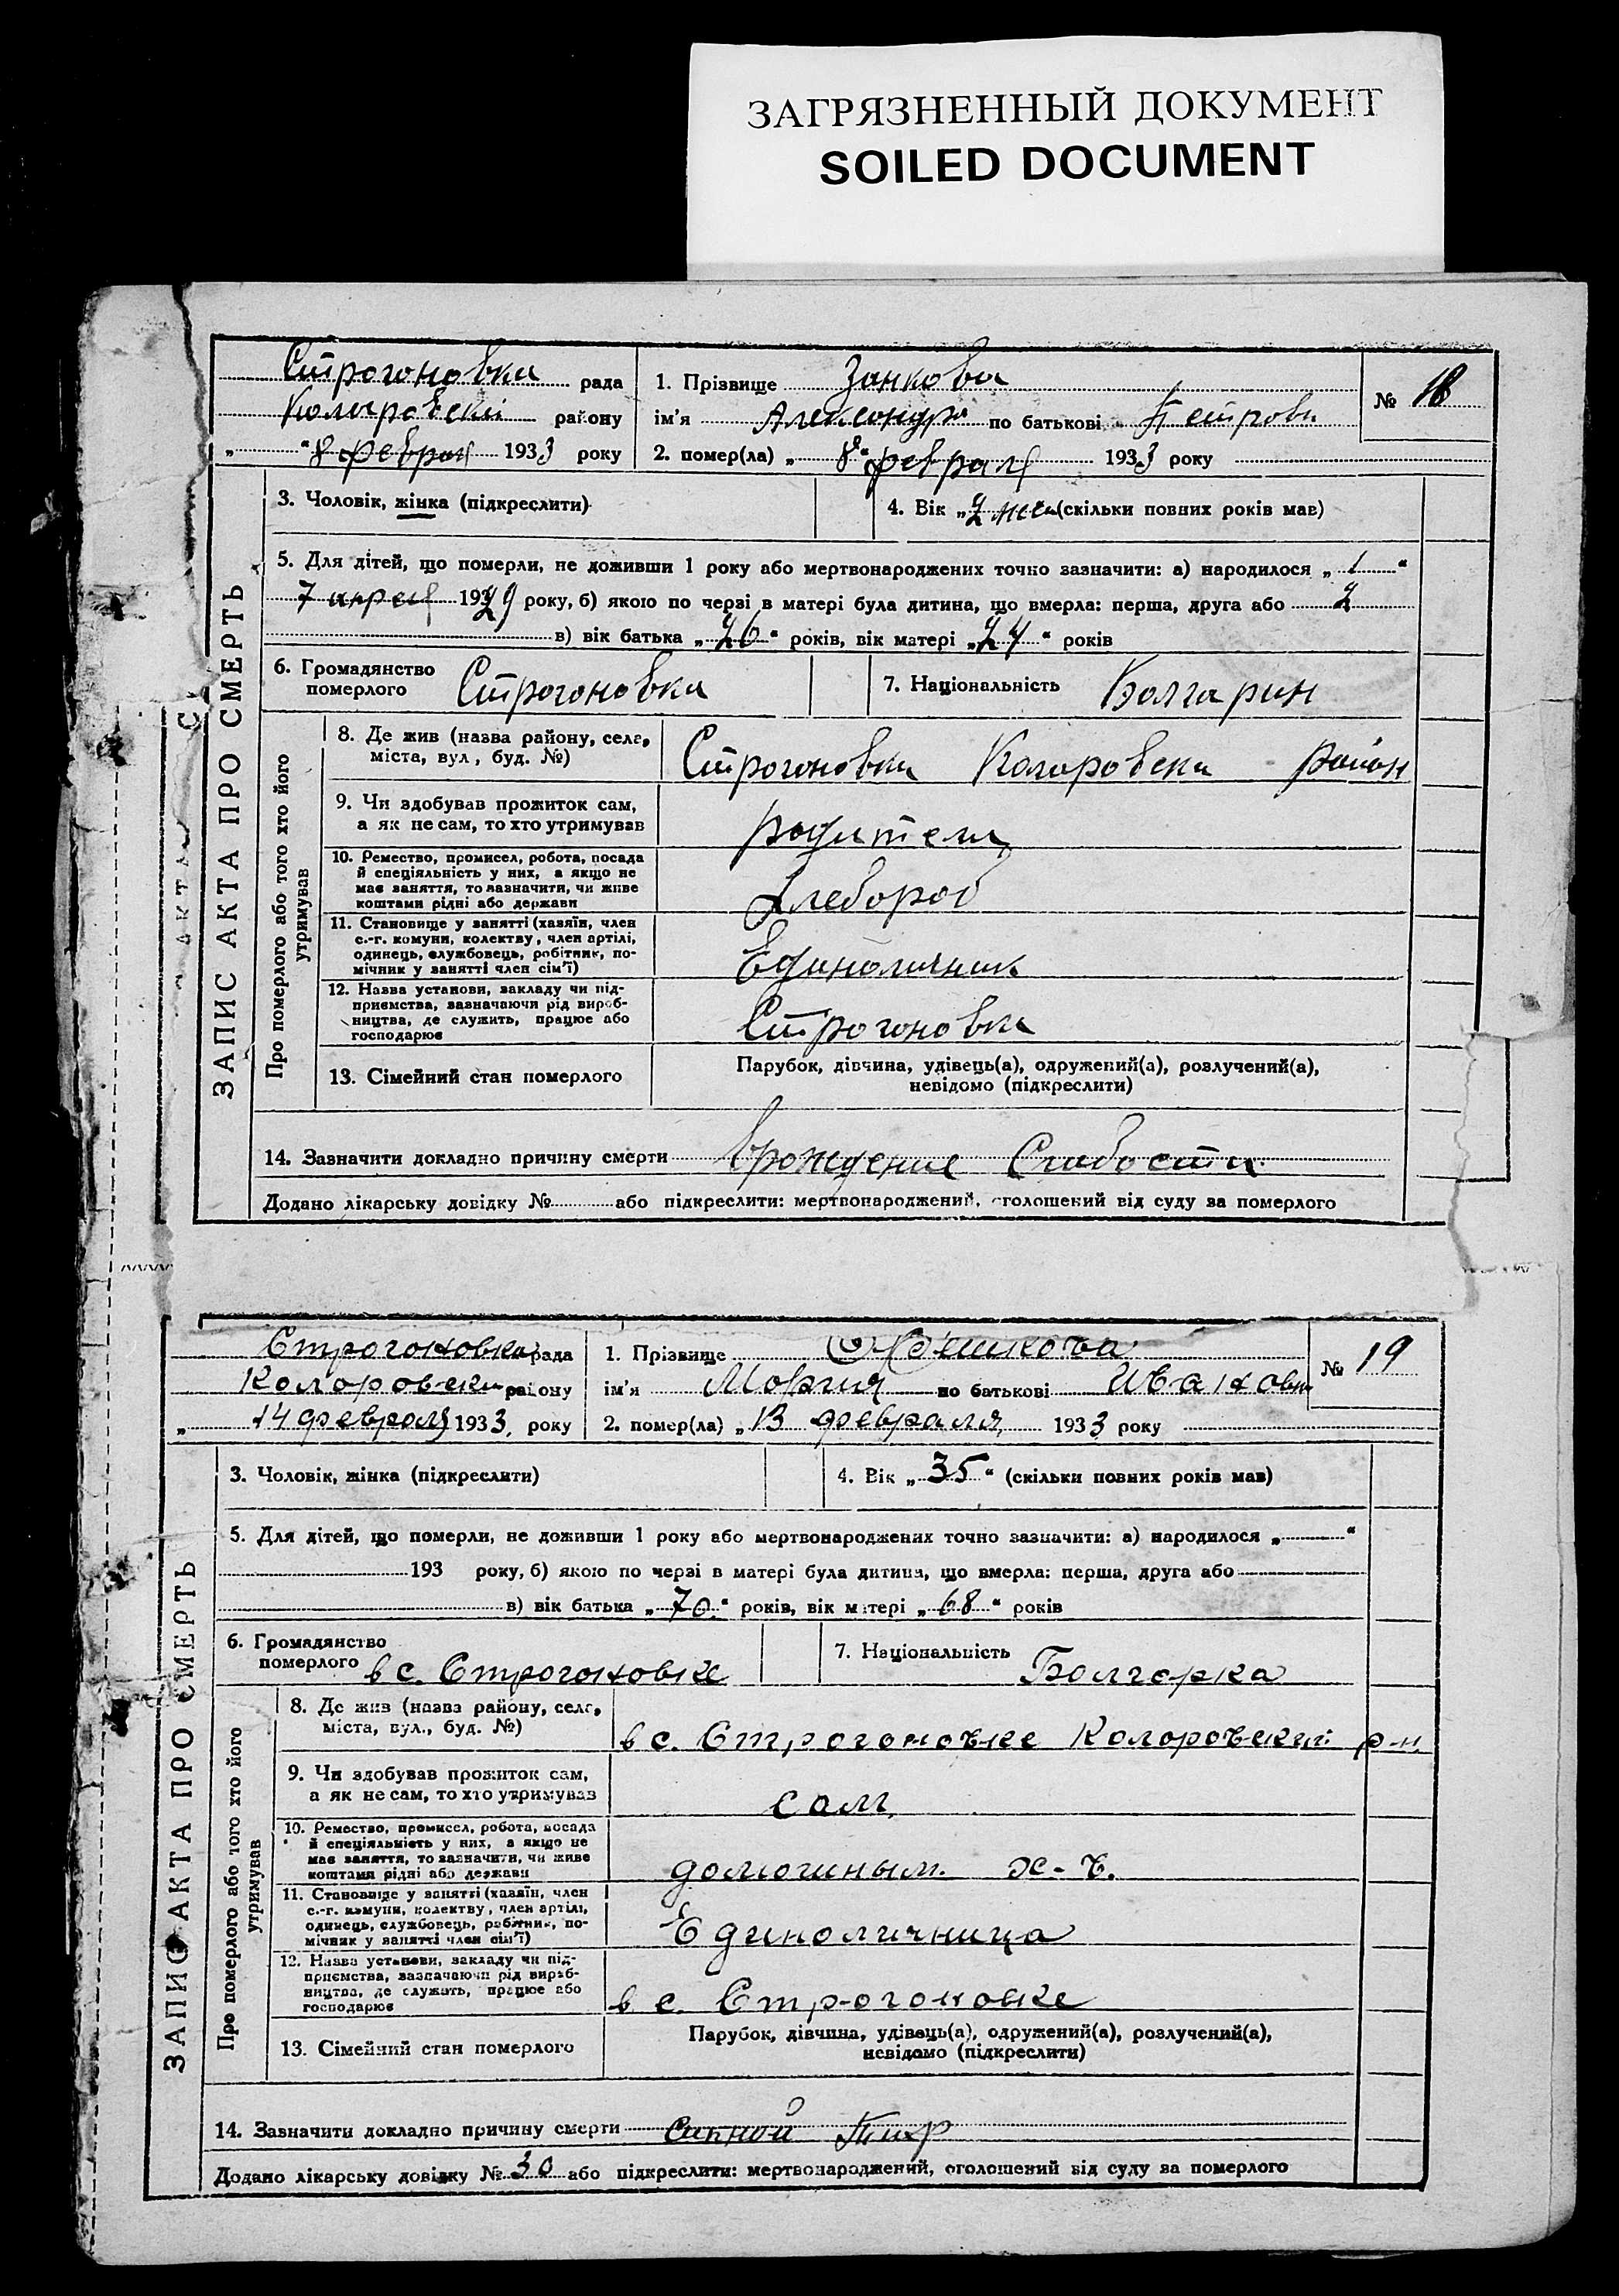 ЗАГРЯЗНЕННЫЙ ДОКУМЕНТ
SOILED DOCUMENT
Строгоновка рада
1. Прізвище Занкова
№ 18
Коларовский району
ім'я Александра по батькові Петровн
„ “ 8 февраля 1933 року
2. помер(ла) „ 8 “ февраля 1933 року
3. Чоловік, жінка (підкреслити)
4. Вік „ (скільки повних років мав)
5. Для дітей, що померли, не доживши 1 року або мертвонароджених точно зазначити: а) народилося „ 1 “
7 апреля 193 29 року, б) якою по черзі в матері була дитина, що вмерла: перша, друга або 2
в) вік батька „ 26 “ років, вік матері „ 24 “ років
6. Громадянство
померлого Строгоновка
7. Національність Болгарин
ЗАПИС АКТА ПРО СМЕРТЬ
Про померлого або того хто його
утримував
8. Де жив (назва району, села,
міста, вул., буд. №) Строгоновка Коларовски район
9. Чи здобував прожиток сам,
а як не сам, то хто утримував родители
10. Ремество, промисел, робота, посада
й спеціяльність у них, а якщо не
має заняття, то зазначити, чи живе
коштами рідні або держави
Хлебороб
11. Становище у занятті (хазяїн, член
с.-г. комуни, колективу, член артілі,
одинець, службовець, робітник, по-
мічник у занятті член сім'ї)
Единоличник
12. Назва установи, закладу чи під-
приємства, зазначаючи рід вироб-
ництва, де служить, працює або
господарює
Строгоновка
13. Сімейний стан померлого
Парубок, дівчина, удівець(а), одружений(а), розлучений(а),
невідомо (підкреслити)
14. Зазначити докладно причину смерти врождение Слабости
Додано лікарську довідку № або підкреслити: мертвонароджений, оголошений від суду за померлого
Строгоновка рада
1. Прізвище
№ 19
Колоровски району
ім'я Мория по батькові Ивановн
„ 14 февраля 1933 року
2. помер(ла) „ 13 февраля 1933 року
3. Чоловік, жінка (підкреслити)
4. Вік „ 35 “ (скільки повних років мав)
5. Для дітей, що померли, не доживши 1 року або мертвонароджених точно зазначити: а) народилося „ “
193 року, б) якою по черзі в матері була дитина, що вмерла: перша, друга або
в) вік батька „ 70 “ років, вік матері „ 68 “ років
6. Громадянство
померлого в с. Строгоновке
7. Національність Болгорка
ЗАПИС АКТА ПРО СМЕРТЬ
Про померлого або того хто його
утримував
8. Де жив (назва району, села,
міста, вул., буд. №) в с. Строгоновке Колоровский р-н
9. Чи здобував прожиток сам,
а як не сам, то хто утримував сам
10. Ремество, промисел, робота, посада
й спеціяльність у них, а якщо не
має заняття, то зазначити, чи живе
коштами рідні або держави
х-в.
11. Становище у занятті (хазяїн, член
с.-г. комуни, колективу, член артілі,
одинець, службовець, робітник, по-
мічник у занятті член сім'ї)
Единоличница
12. Назва установи, закладу чи під-
приємства, зазначаючи рід вироб-
ництва, де служить, працює або
господарює
в с. Строгоновке
13. Сімейний стан померлого
Парубок, дівчина, удівець(а), одружений(а), розлучений(а),
невідомо (підкреслити)
14. Зазначити докладно причину смерти Сипной Тиф
Додано лікарську довідку № 30 або підкреслити: мертвонароджений, оголошений від суду за померлого